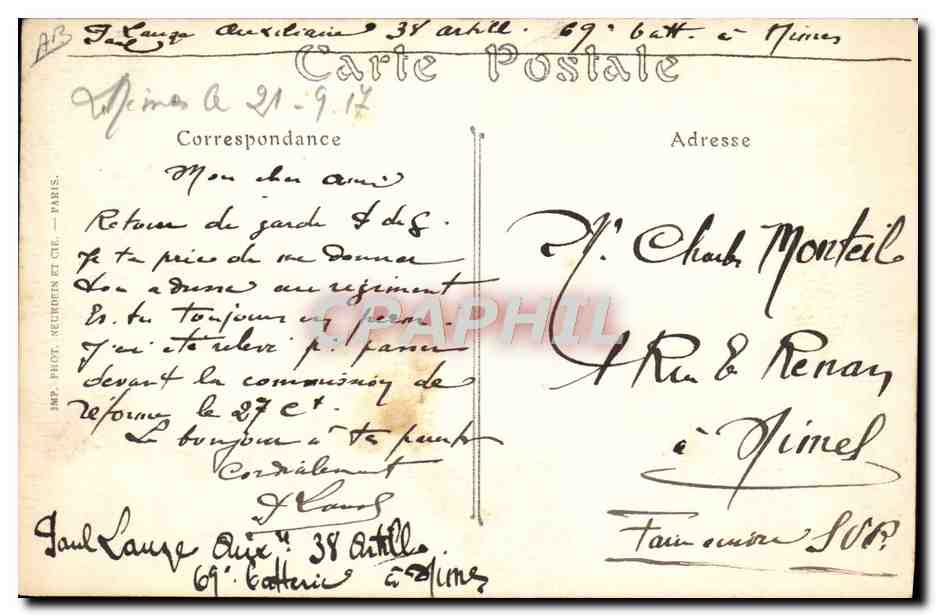 AB
Paul Lauze Auxiliaire 38 artill. 69e batt. à Nimes
Carte Postale
Nimes le 21-9.17
Correspondance
Adresse
IMP. PHOT. NEURDEIN ET CIE. — PARIS.
Mon cher ami
Retour de garde
Je te prie de me donner
ton adresse au régiment
Es. tu toujours en perm.
J'ai été relevé pr. passer
devant la commission de
réforme le 27 ct.
Le bonjour à tes parents
Cordialement
P Lauze
Paul Lauze Auxre 38 Artille
69e batterie à Nimes
Mr Charles Monteil
1 Rue E Renan
à Nimes
Faire suivre SVP.
CPAPHIL